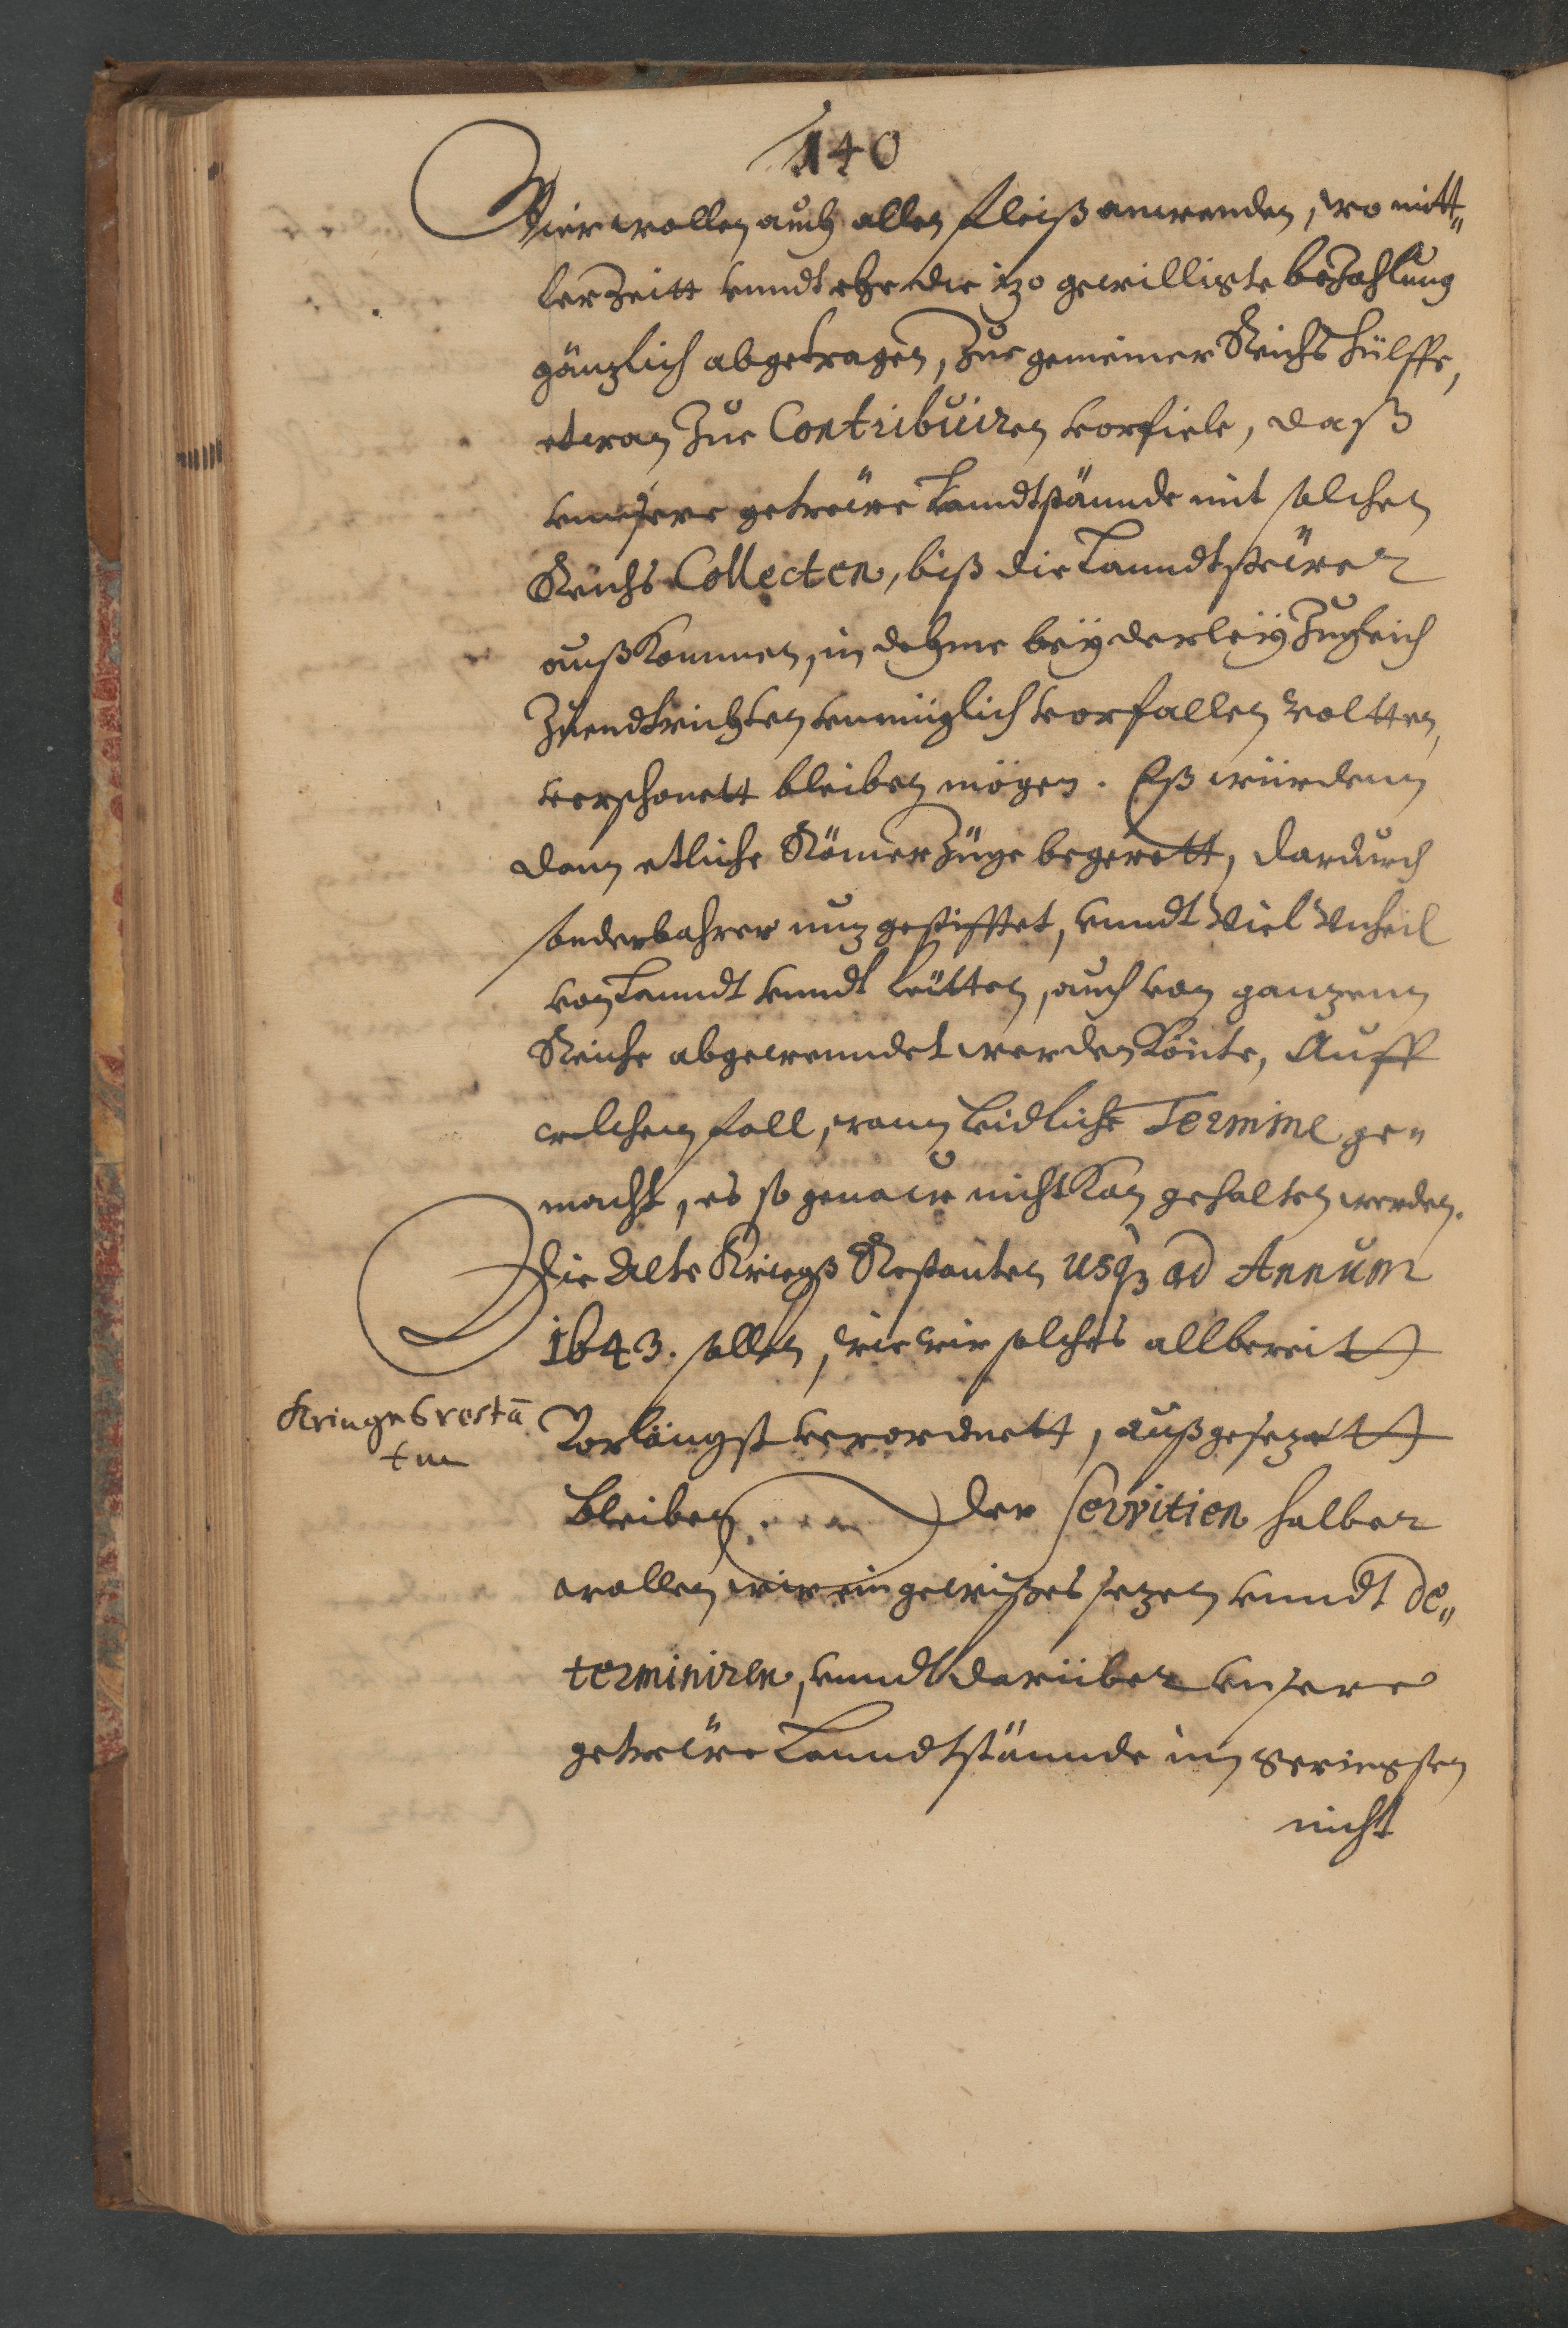 140
Wier wollen auch allen fleiß anwenden, wo mitt„
ler Zeitt vnndt ehe die izo gewilligte bezahlung
gänzlich abgetragen, Zur gemeiner Reichs hülffe,
etwan Zue Contribuiren vorfiele, daß
vnnsere getrewe Landtstännde mit solchen
Reichs Collecten, biß die Lanndtsteüren
außkommen, in dehme beÿderleÿ Zugleich
Zuendtrichten vnmüglich vorfallen woltten,
verschonett bleiben mögen. Eß würdenn
dann etliche Römer Züge begerett, dardurch
sonderbahrer nuz gestifftet, vnndt Viel Vnheil
von Lanndt vnndt Leütten, auch von ganzenn
Reiche abgewenndet werden könte, Auff
welchen fall, wann Leidliche Termine ge„
macht, es so genaw nicht kan gehalten werden.
Die Alte Kriegß Restanten usq3 ad Annum
1643. sollen, wie wir solches allbereitt
Vorlängst verordnett, außgesezett
Kriegesrestā
ten
bleiben der Servitien halber
wollen wir ein gewißes sezen vnndt de„
terminiren, vnndt darüber vnsere
getrewe Lanndtstännde im geringsten
nicht